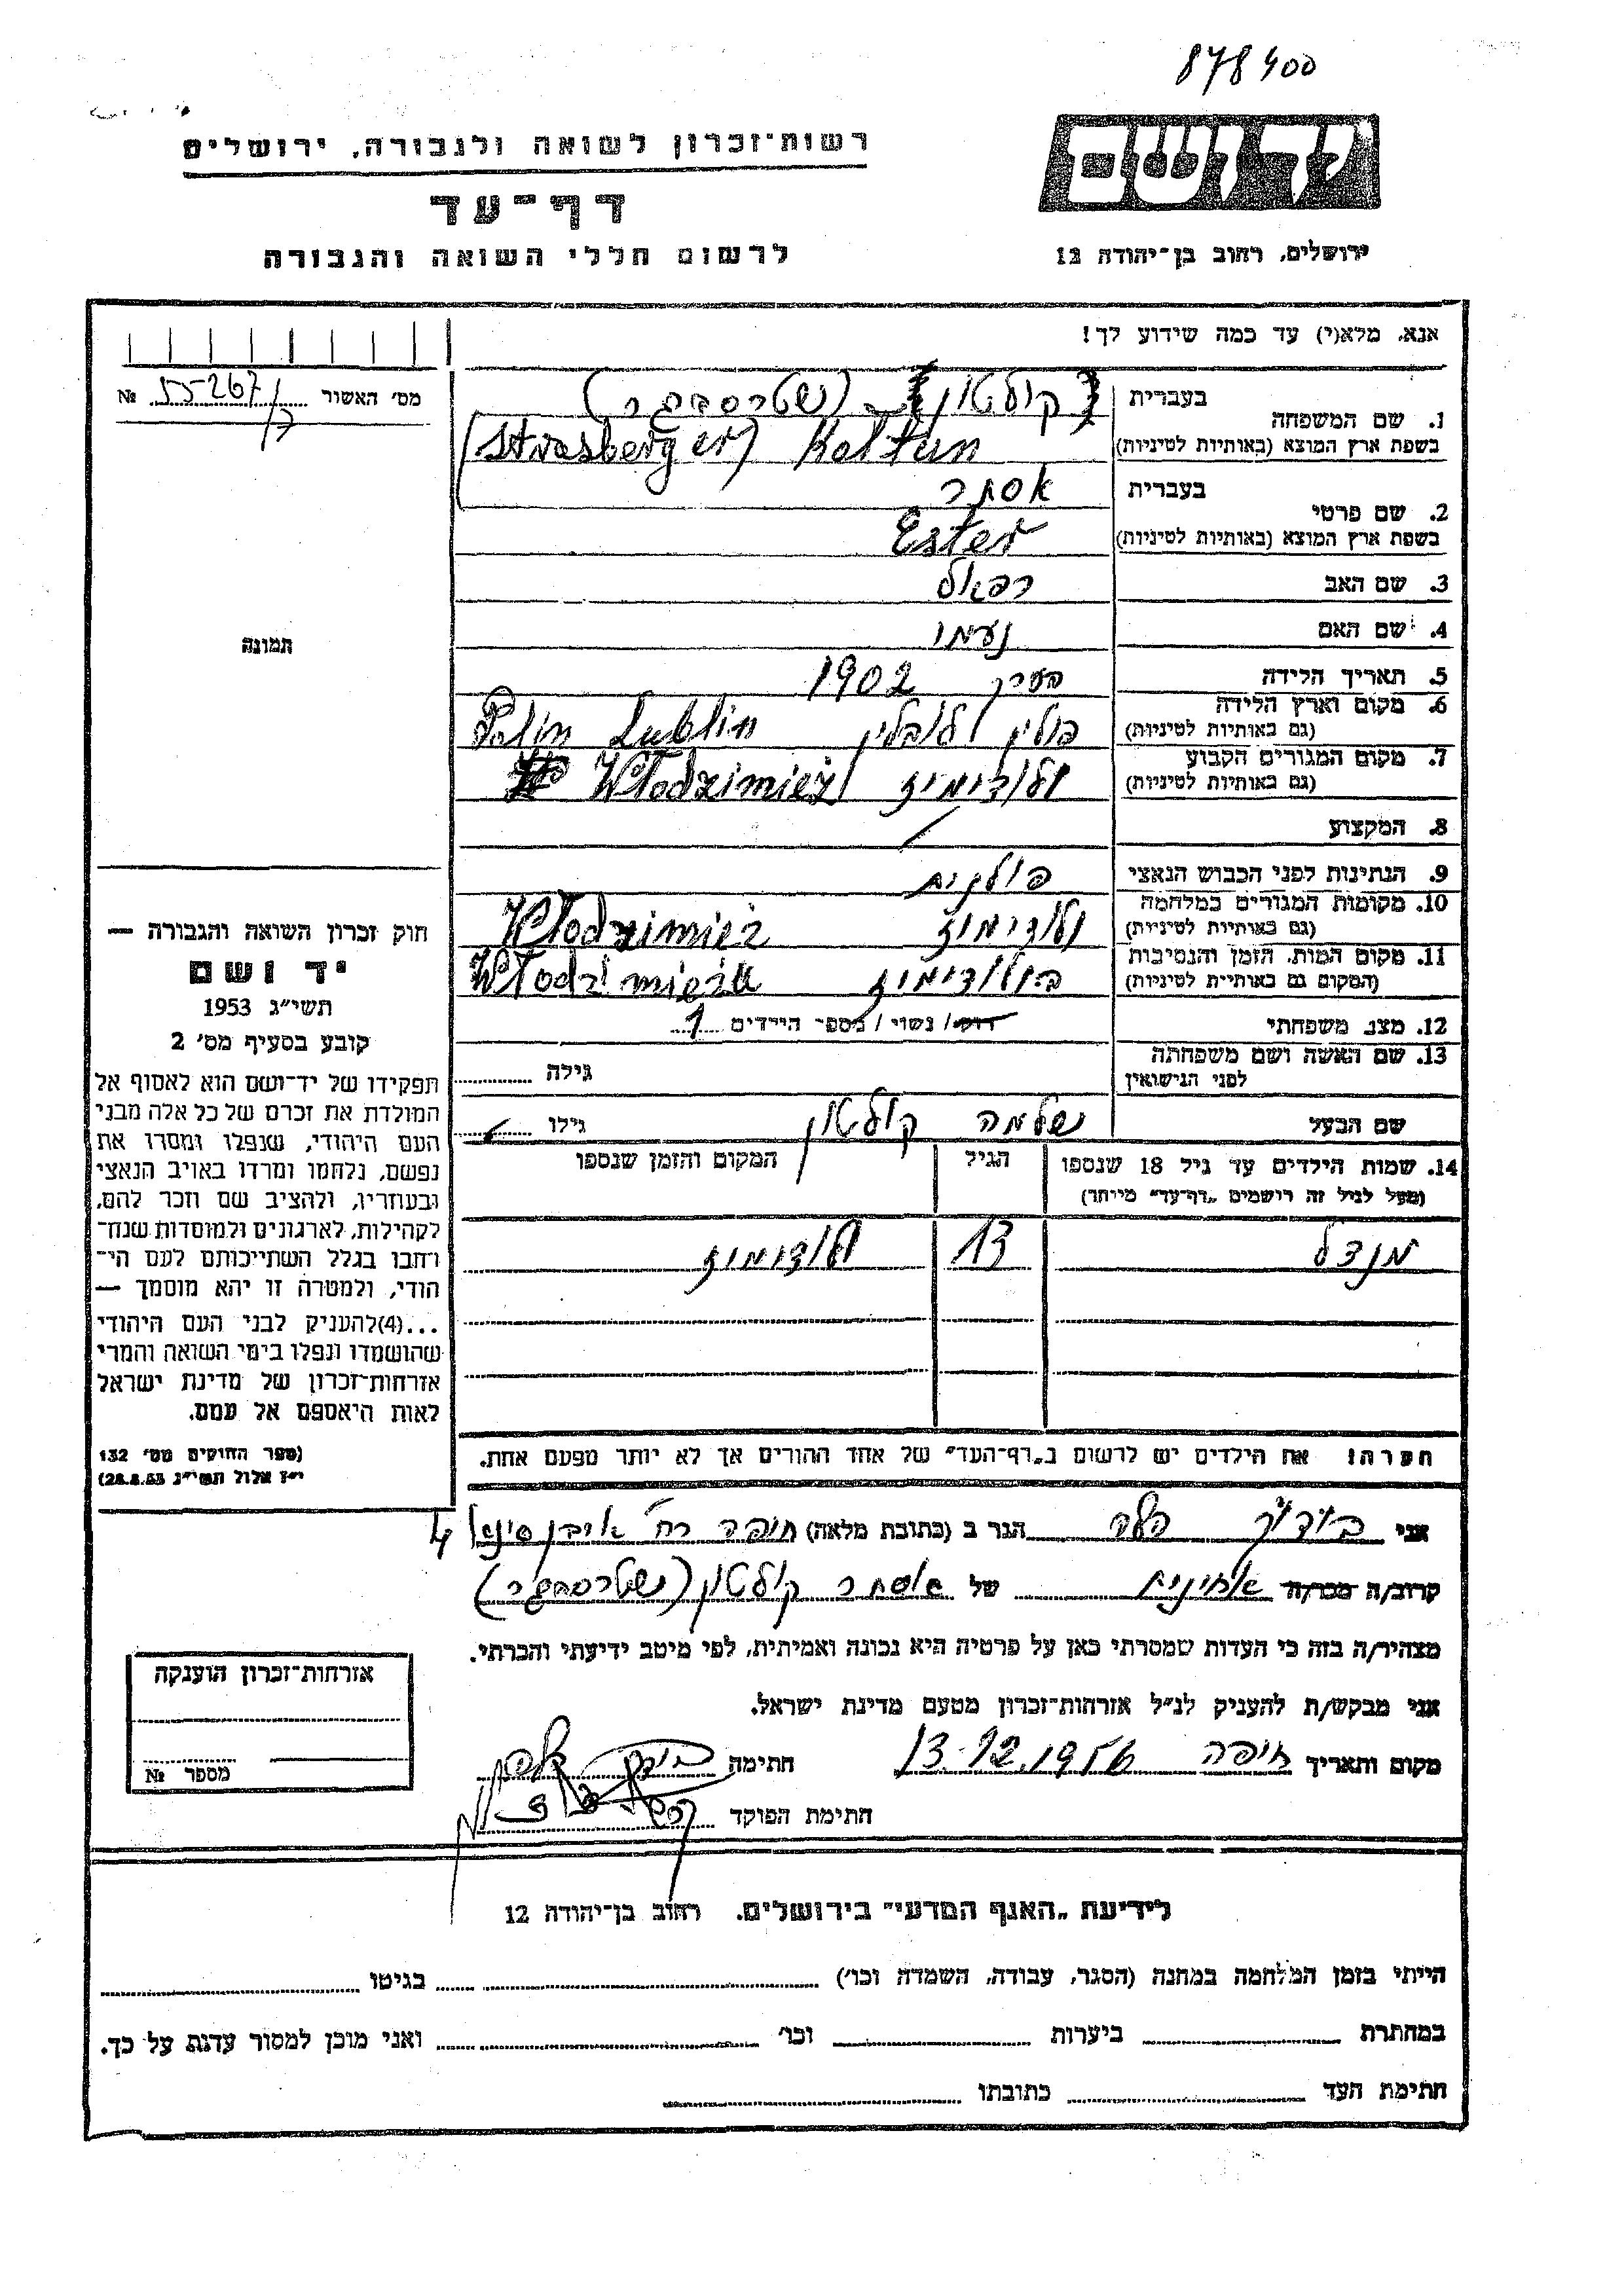 878400
רשות־זכרון לשואה ולגבורה, ירושלים
יד ושם
דף־עד
לרשום חללי השואה והגבורה
ירושלים, רחוב בן־יהודה 12
אנא, מלא(י) עד כמה שידוע לך!
מס' האשור № 55-267/7
1. שם המשפחה
בעברית קולטון (שטרסברגר)
בשפת ארץ המוצא (באותיות לטיניות) (Strasberger) Koltun
2. שם פרטי
בעברית אסתר
בשפת ארץ המוצא (באותיות לטיניות) Ester
3. שם האב רפאל
4. שם האם נעמי
תמונה
5. תאריך הלידה בערך 1902
6. מקום וארץ הלידה
(גם באותיות לטיניות) פולין לובלין Polin Lublin
7. מקום המגורים הקבוע
(גם באותיות לטיניות) ולודימיז Wlodzimierz
8. המקצוע
9. הנתינות לפני הכבוש הנאצי פולנית
10. מקומות המגורים במלחמה
(גם באותיות לטיניות) ולודימיז Wlodzimież
11. מקום המות, הזמן והנסיבות
(המקום גם באותיית לטיניות) בולודימיז
12. מצב משפחתי רוק/ נשוי / מספר הילדים 1
13. שם האשה ושם משפחתה
לפני הנישואין
גילה
שם הבעל שלמה קולטון גילו
14. שמות הילדים עד גיל 18 שנספו
(מעל לגיל זה רושמים „דף־עד" מיוחד)
הגיל
המקום והזמן שנספו
מנדל 13 ולודימיז
הערה! את הילדים יש לרשום ב„דף־העד" של אחד ההורים אך לא יותר מפעם אחת.
חוק זכרון השואה והגבורה —
יד ושם
תשי"ג 1953
קובע בסעיף מס' 2
תפקידו של יד־ושם הוא לאסוף אל
המולדת את זכרם של כל אלה מבני
העם היהודי, שנפלו ומסרו את
נפשם, נלחמו ומרדו באויב הנאצי
ובעוזריו, ולהציב שם וזכר להם,
לקהילות, לארגונים ולמוסדות שנח־
רחבו בגלל השתייכותם לעם הי־
הודי, ולמטרה זו יהא מוסמך —
...(4)להעניק לבני העם היהודי
שהושמדו ונפלו בימי השואה והמרי
אזרחות־זכרון של מדינת ישראל
לאות היאספם אל עמם.
(ספר החוקים מס' 132
י"ז אלול תשי"ג 28.8.53)
אני הגר ב (כתובת מלאה) חיפה רח' אבן סינא 4
קרוב/ה מכר/ה אחינית של אסתר קולטון (שטרסברגר)
מצהיר/ה בזה כי העדות שמסרתי כאן על פרטיה היא נכונה ואמיתית, לפי מיטב ידיעתי והכרתי.
אני מבקש/ת להעניק לנ"ל אזרחות־זכרון מטעם מדינת ישראל.
מקום ותאריך חיפה 13.12.1956 חתימה
חתימת הפוקד
אזרחות־זכרון הוענקה
מספר №
לידיעת „האגף המדעי" בירושלים. רחוב בן־יהודה 12
הייתי בזמן המלחמה במחנה (הסגר, עבודה, השמדה וכו') בגיטו
במחתרת ביערות וכו' ואני מוכן למסור עדות על כך.
חתימת העד כתובתו